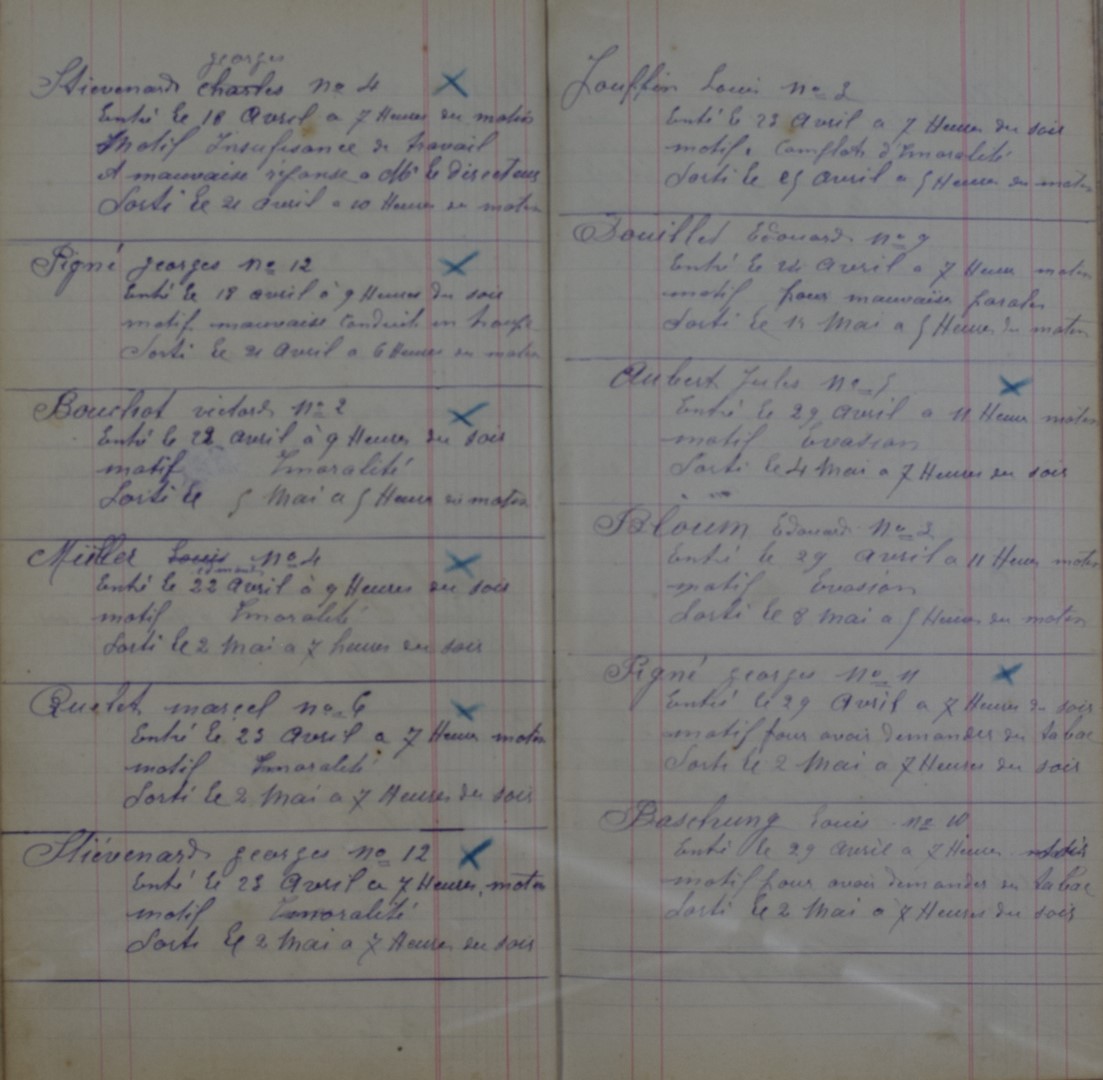 georges
Stievenard charles no 4
Entré le 18 Avril a 7 Heures du matin
Motif Insufisance de travail
A mauvaise réponse a Mr le directeur
Sorti le 21 Avril a 10 Heures du matin
Pigné georges no 12
Entré le 18 avril à 9 Heures du soir
motif mauvaise Conduite en troupe
Sorti le 21 Avril a 6 Heures du matin
Bouchot victord no 2
Entré le 22 avril à 9 Heures du soir
motif Imoralité
Sorti le 5 Mai a 5 Heures du matin
Müller Louis no 4
Entré le 22 Avril à 9 Heures du soir
motif Imoralité
Sorti le 2 Mai a 7 heures du soir
Quelet marcel no 6
Entré le 23 Avril a 7 Heures matin
motif Imoralité
Sorti le 2 Mai a 7 Heures du soir
Stiévenard georges no 12
Entré le 23 Avril a 7 Heures matin
motif Imoralité
Sorti le 2 Mai a 7 Heures du soir
Jouffin Louis no 3
Entré le 23 Avril a 7 Heures du soir
motif Complot d'Imoralité
Sorti le 25 avril a 5 Heures du matin
Douillet Edouard no 9
Entré le 24 Avril a 7 Heures matin
motif pour mauvaise paroles
Sorti le Mai a 5 Heures du matin
Aubert Jules no 5
Entré le 29 Avril a 11 Heures matin
motif Evasion
Sorti le 4 Mai a 7 Heures du soir
Bloum Edouard No 3
Entré le 29 avril a 11 Heures matin
motif Evasion
Sorti le 8 Mai a 5 Heures du matin
Pigné georges no 11
Entré le 29 Avril a 7 Heures du soir
motif pour avoir demander du tabac
Sorti le 2 Mai a 7 Heures du soir
Baschung Louis no 10
Entré le 29 Avril a 7 Heures
motif pour avoir demander du tabac
Sorti le 2 Mai a 7 Heures du soir